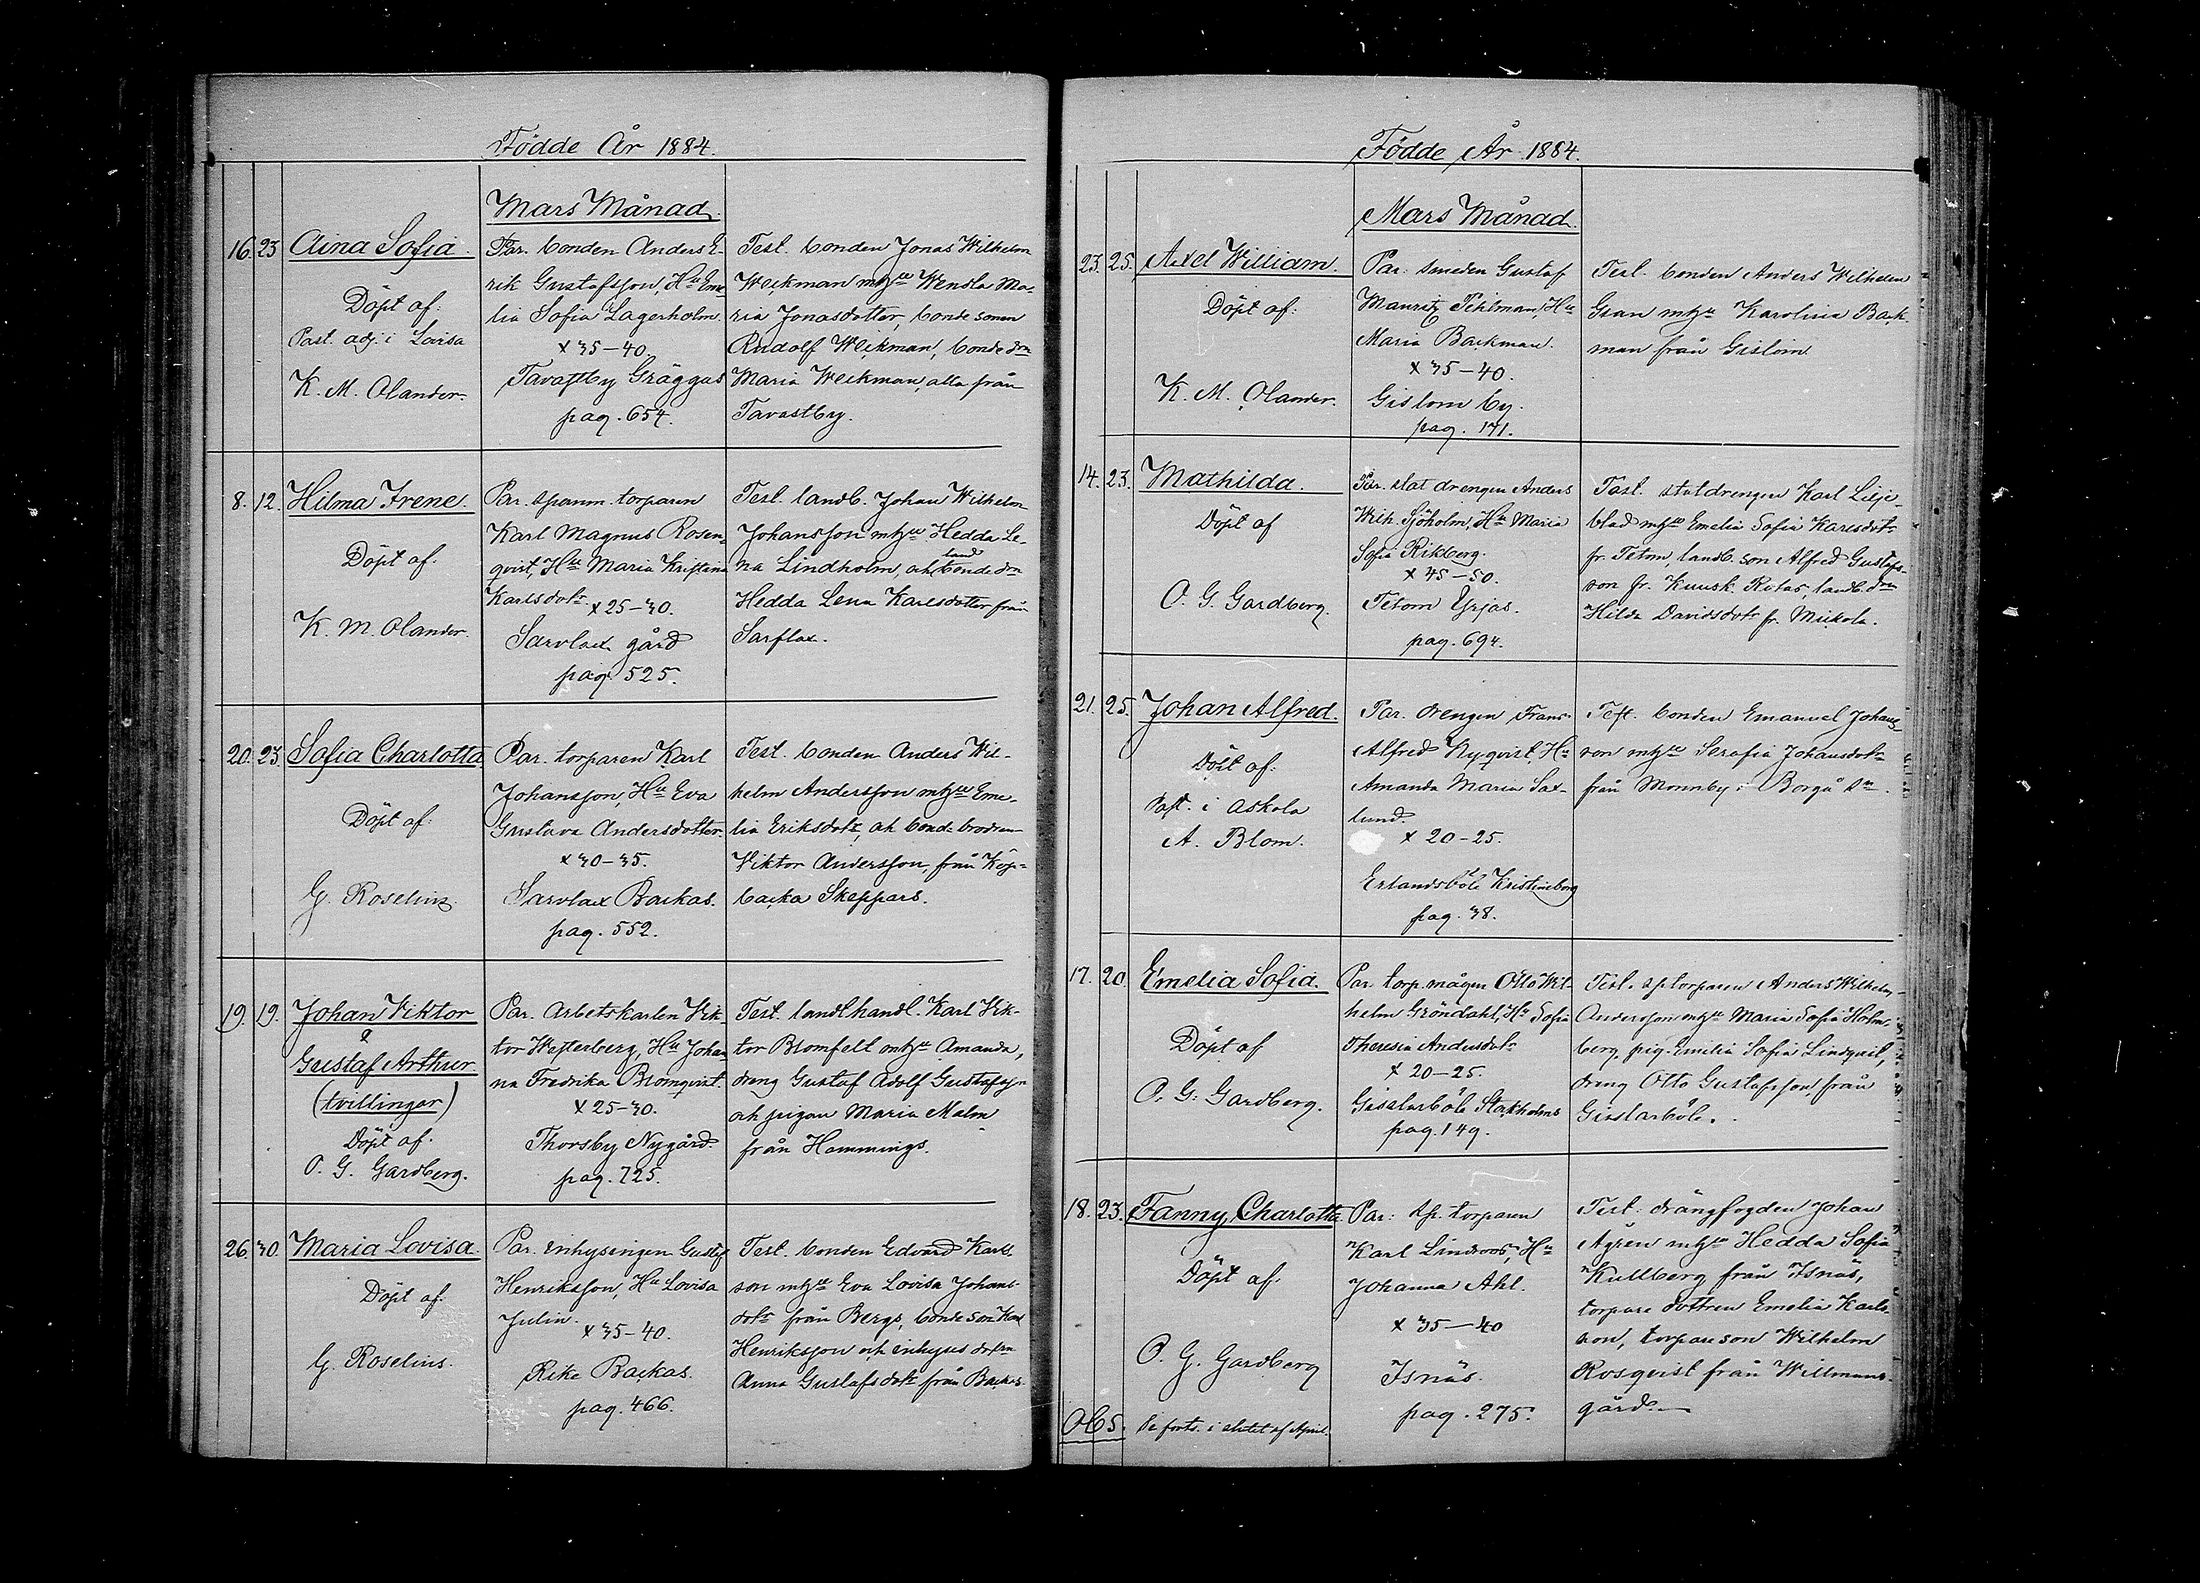 Födde År 1884.
Mars Månad.
16. 23 Aina Sofia.
Döpt af:
Past. adj. i Lovisa
K. M. Olander.
Par. bonden Anders E-
rik Gustafsson, Hu Eme-
lia Sofia Lagerholm.
x 35-40
Tavastby Gräggas
pag. 654.
Test. bonden Jonas Wilhelm
Weckman m hu Wendla Ma-
ria Jonasdotter, bondesonen
Rudolf Weckman, bonde drn
Maria Weckman, alla från
Tavastby.
8. 12. Hilma Irene.
Döpt af:
K. M. Olander.
Par. spanm. torparen
Karl Magnus Rosen-
qvist, Hu Maria Kristina
Karlsdotr x 25-30.
Sarvlax gård
pag 525.
Test. landb. Johan Wilhelm
Johansson m hu Hedda Le-
na Lindholm, och landbonde drn
Hedda Lena Karlsdotter från
Sarflax.
20. 23. Sofia Charlotta
Döpt af:
G. Roselius.
Par. torparen Karl
Johansson, Hu Eva
Gustava Andersdotter.
x 30-35.
Sarvlax Backas.
pag. 552.
Test. bonden Anders Wil-
helm Andersson m hu Eme-
lia Eriksdotr, och bonde brodren
Viktor Andersson, frånKöp-
backa Skeppars.
19. 19. Johan Viktor
&
Gustaf Arthur
(tvillingar)
Döpt af:
O. G. Gardberg.
Par. Arbetskarlen Vik-
tor Westerberg, Hu Johan-
na Fredrika Blomqvist.
x 25-30.
Thorsby Nygård
pag. 725.
Test. landthandl. Karl Vik-
tor Blomfelt m hu Amanda,
dreng Gustaf Adolf Gustafsson
och pigan Maria Malm
från Hammings.
26. 30. Maria Lovisa.
Döpt af:
G. Roselius.
Par. inhysingen Gustaf
Henriksson, Hu Lovisa
Julin.
x 35-40.
Rike Backas.
pag. 466.
Test. bonden Edvard Karls-
son m hu Eva Lovisa Johans-
dotr från Bergs, bonde son Karl
Henriksson och inhyses dotren
Anna Gustafsdotr från Backas.
Födde År 1884.
Mars Månad.
23. 25. Axel William.
Döpt af:
K. M. Olander.
Par. smeden Gustaf
Mauritz Pihlman, Hu
Maria Backman.
x 35-40.
Gislom by.
pag. 171.
Test. bonden Anders Wilhelm
Gran m hu Karolina Back-
man från Gislom.
14. 23. Mathilda.
Döpt af
O. G. Gardberg.
Par. stat drengen Anders
Wilh. Sjöholm, Hu Maria
Sofia Rikberg.
x 45-50.
Tetom Yrjas.
pag. 694.
Test. statdrengen Karl Lilje-
blad m hu Emelia Sofia Karlsdotr
fr. Tetom, landb. son Alfred Gustafs-
son fr. Kuusk. Rotas, landb. drn
Hilda Davidsdotr fr. Mickola.
21. 25. Johan Alfred.
Döpt af:
Past. i Askola
A. Blom.
Par. drengen Frans
Alfred Nyqvist, Hu
Amanda Maria Sax-
lund.
x 20-25.
Erlandsböle Kristineborg
pag. 38.
Test. bonden Emanuel Johans-
son m hu Serafia Johansdotr
från Monnby i Borgå sn.
17. 20. Emelia Sofia.
Döpt af
O. G. Gardberg.
Par. torp. mågen Otto Wil-
helm Gröndahl, Hu Sofia
Theresia Andersdotr
x 20-25.
Gislarböle Stockholms
pag. 149.
Test. sp torparen Anders Wilhelm
Andersson m hu Maria Sofia Holm-
berg, pig. Emilia Sofia Lindqvist,
dreng Otto Gustafsson från
Gislarböle.
18. 23. Fanny Charlotta
Döpt af:
O. G. Gardberg
Par: sp. torparen
Karl Lindroos, Hu
Johanna Ahl.
x 35-40
Isnäs.
pag. 275.
Test. drängfogden Johan
Ågren m hu Hedda Sofia
Kullberg från Isnäs,
torpare dottren Emelia Karls-
son, torpareson Wilhelm
Rosqvist från Willmans-
gård.
Obs. Se forts. i slutet af April.